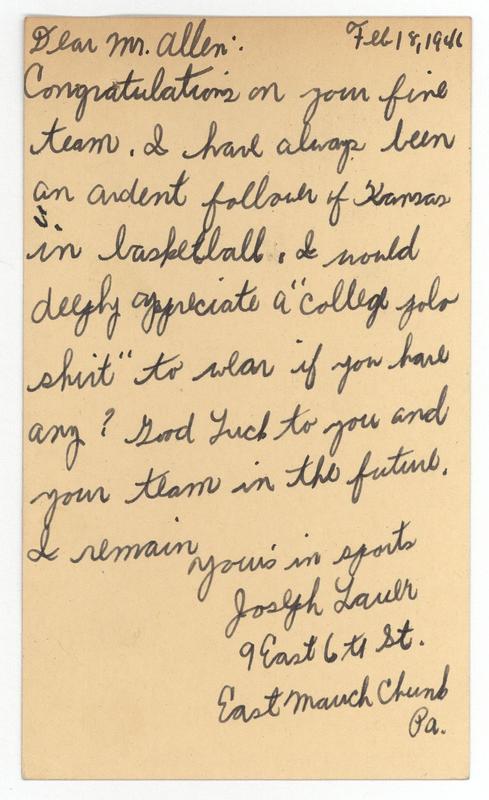 Dear Mr. Allen:
Feb 18, 1946
Congratulations on your fine
team. I have always been
an ardent follower of Kansas
U
in basketball. I would
deeply appreciate a "College polo
shirt" to wear if you have
any? Good Luck to you and
your team in the future.
I remain
yours in sports
Joseph Lauer
9 East 6th St.
East Mauch Chunk
Pa.